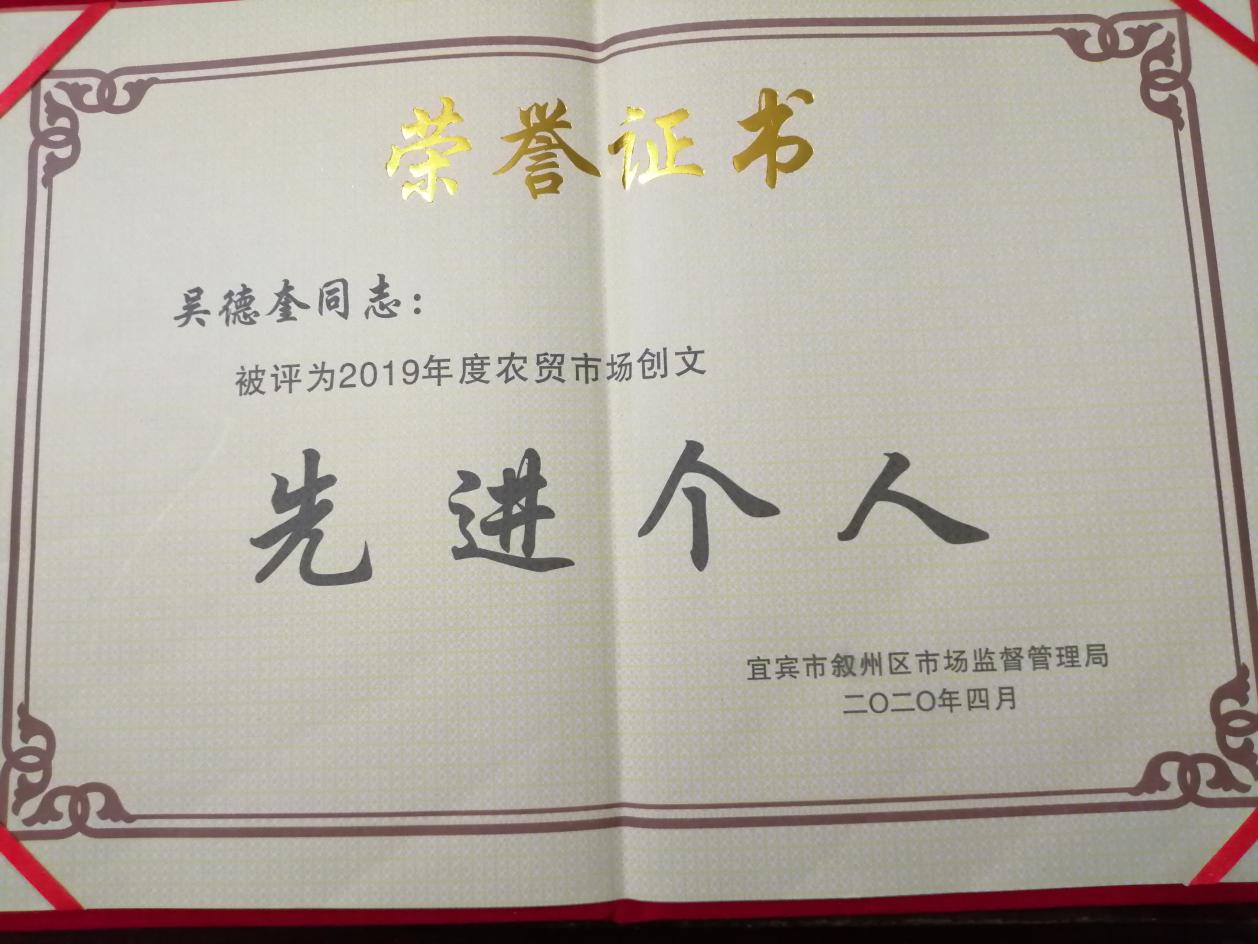 荣誉证书
吴德奎同志：
被评为2019年度农贸市场创文
先进个人
宜宾市叙州区市场监督管理局
二〇二〇年四月